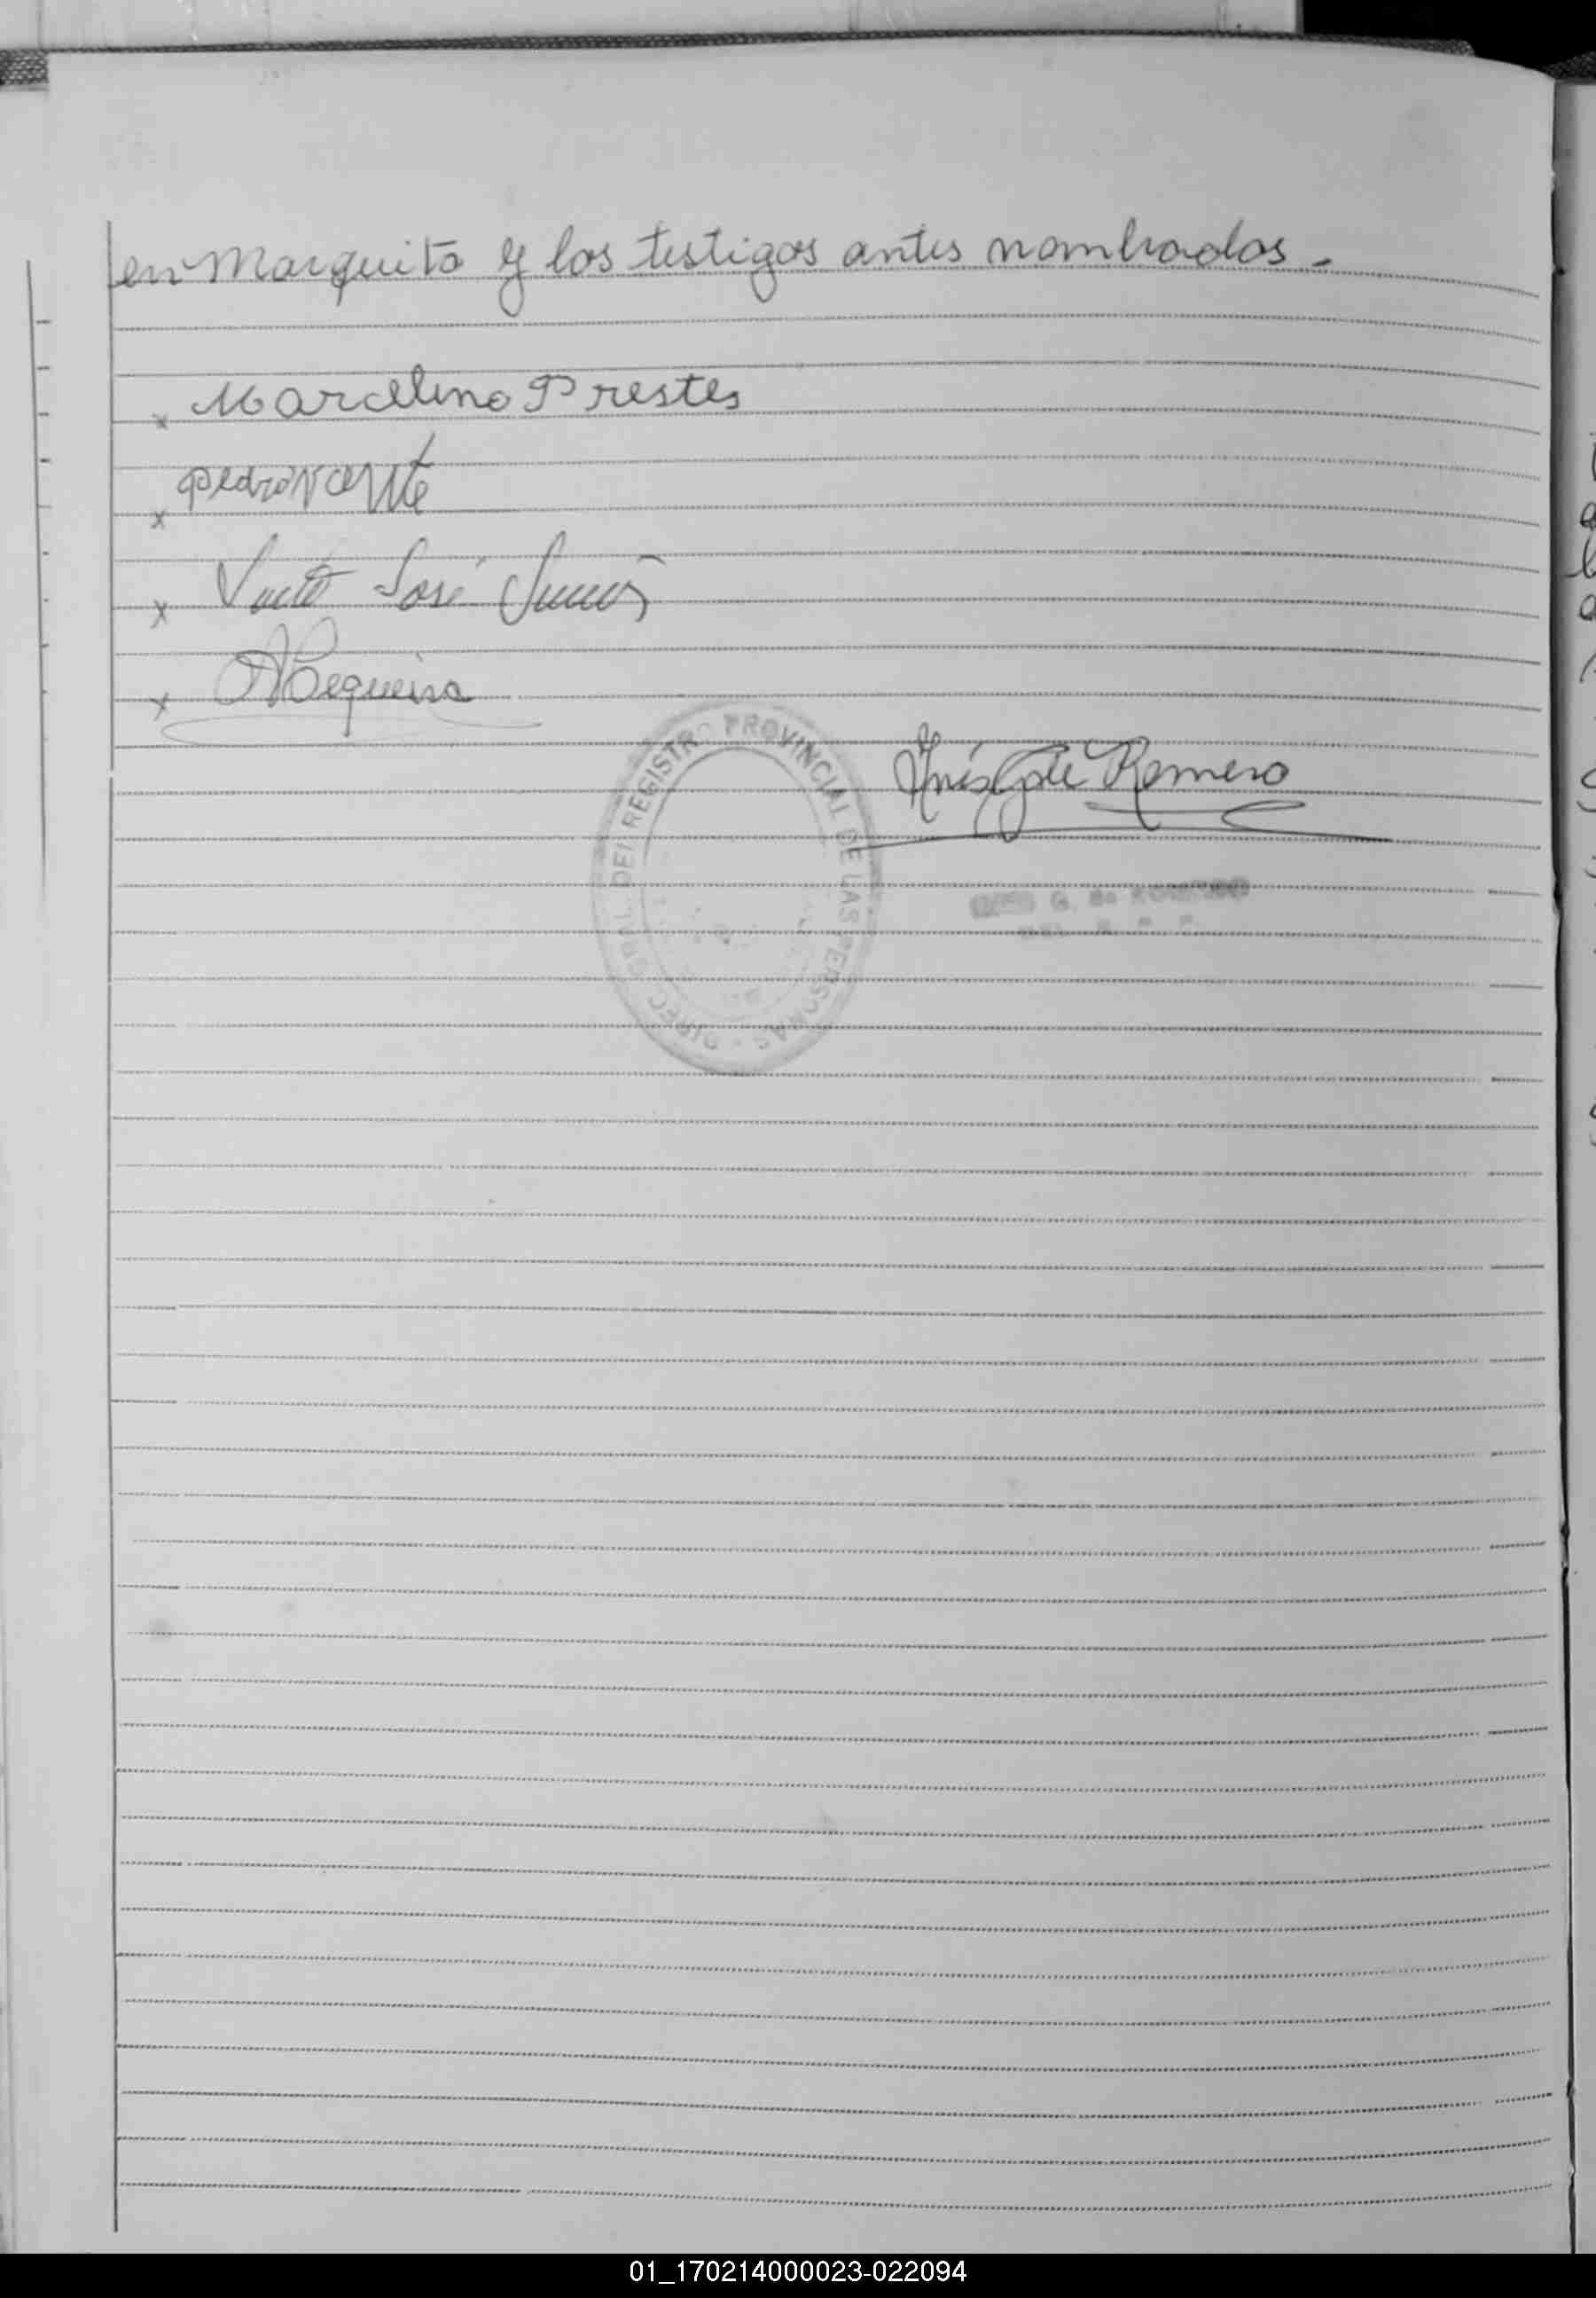 en Marquito y los testigos antes nombrados.-
x Marcelino Prestes
x pedro
x José
x A Sequeira
Inés G de Romero
DIREC. GRAL. DEL REGISTRO PROVINCIAL DE LAS PERSONAS
INES G. de ROMERO
01_170214000023-022094